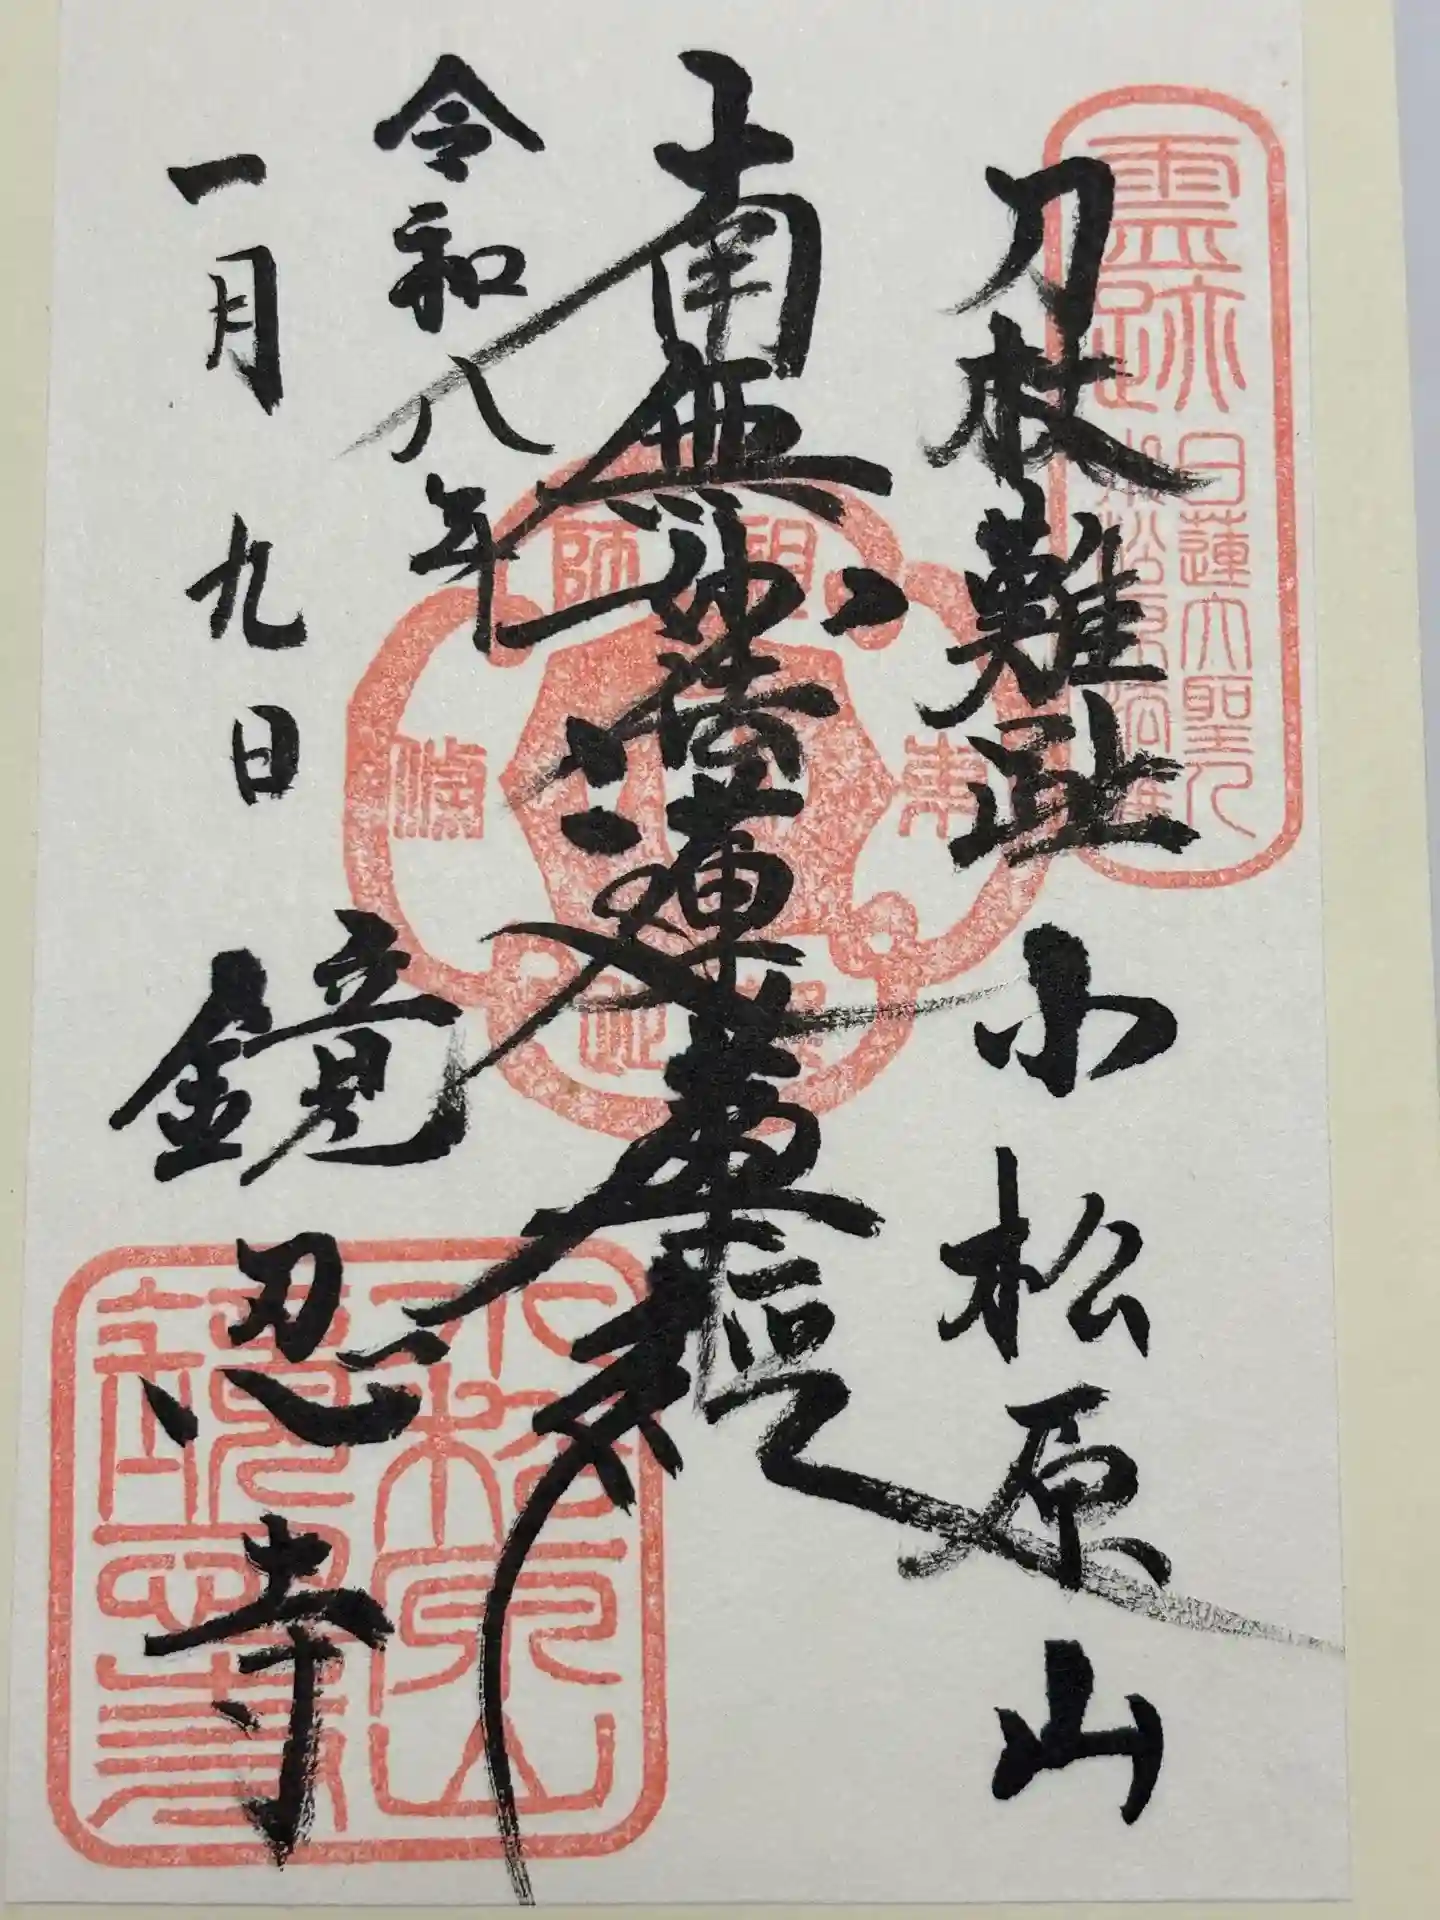 霊跡
日蓮大聖人
小松原法難
刀杖難趾
小松原山
南無妙法蓮華経
祖師
東
條
令和八年
一月九日
鏡忍寺
小松原山
鏡忍寺